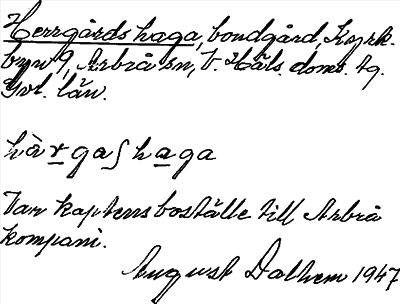 Herrgårdshaga, bondgård, Kyrk-
byn 9, Arbrå sn, V. Häls. doms. tg.
Gvl. län.
hàrgaʃhaga
Var kaptensboställe till Arbrå
kompani.
August Dalhem 1947